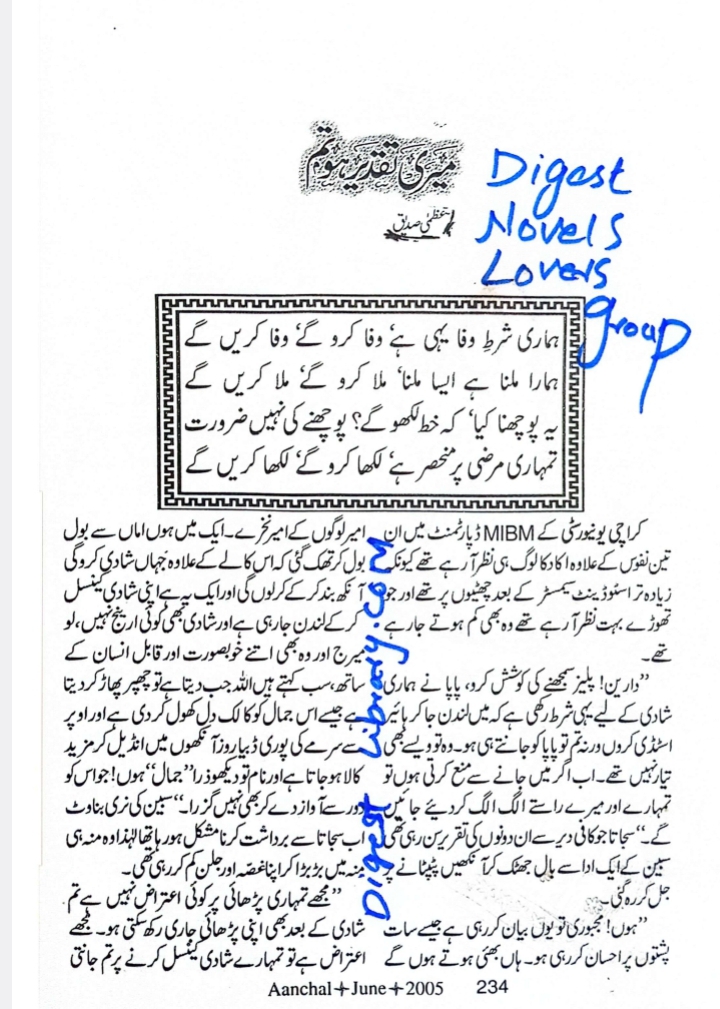 میری تقدیر ہو تم
عظمیٰ صدیق
Digest
Novels
Lovers
group
ہماری شرطِ وفا یہی ہے‘ وفا کرو گے‘ وفا کریں گے
ہمارا ملنا ہے ایسا ملنا‘ ملا کرو گے‘ ملا کریں گے
یہ پوچھنا کیا‘ کہ خط لکھو گے؟ پوچھنے کی نہیں ضرورت
تمہاری مرضی پر منحصر ہے‘ لکھا کرو گے‘ لکھا کریں گے
کراچی یونیورسٹی کے MIBM ڈپارٹمنٹ میں ان
تین نفوس کے علاوہ اکا دکا لوگ ہی نظر آ رہے تھے کیونکہ
زیادہ تر اسٹوڈینٹ سیمسٹر کے بعد چھٹیوں پر تھے اور جو
تھوڑے بہت نظر آ رہے تھے وہ بھی کم ہوتے جا رہے
تھے۔
”دارین! پلیز سمجھنے کی کوشش کرو، پاپا نے ہماری
شادی کے لیے یہی شرط رکھی ہے کہ میں لندن جا کر ہائیر
اسٹڈی کروں ورنہ تم تو پاپا کو جانتے ہی ہو۔ وہ تو ویسے بھی
تیار نہیں تھے۔ اب اگر میں جانے سے منع کرتی ہوں تو
تمہارے اور میرے راستے الگ الگ کر دیئے جائیں
گے۔“ سجاتا جو کافی دیر سے ان دونوں کی تقریریں رہی تھی
سبین کے ایک ادا سے بال جھٹک کر آنکھیں پٹپٹانے پر
جل کر رہ گئی۔
”ہوں! مجبوری تو یوں بیان کر رہی ہے جیسے سات
پشتوں پر احسان کر رہی ہو۔ ہاں بھئی ہوتے ہوں گے
امیر لوگوں کے امیر نخرے۔ ایک میں ہوں اماں سے بول
بول کر تھک گئی کہ اس کالے کے علاوہ جہاں شادی کرو گی
آنکھ بند کر کے کر لوں گی اور ایک یہ ہے اپنی شادی کینسل
کر کے لندن جا رہی ہے اور شادی بھی کوئی ارینج نہیں، لو
میرج اور وہ بھی اتنے خوبصورت اور قابل انسان کے
ساتھ، سب کہتے ہیں اللہ جب دیتا ہے تو چھپر پھاڑ کر دیتا
ہے جیسے اس جمال کو کالک دل کھول کر دی ہے اور اوپر
سے سرمے کی پوری ڈبیا روز آنکھوں میں انڈیل کر مزید
کالا ہو جاتا ہے اور نام تو دیکھو ذرا ”جمال“ ہوں! جو اس کو
دور سے آواز دے کر بھی نہیں گزرا۔“ سبین کی نری بناوٹ
اب سجاتا سے برداشت کرنا مشکل ہو رہا تھا لہٰذا وہ منہ ہی
منہ میں بڑبڑا کر اپنا غصہ اور جلن کم کر رہی تھی۔
”مجھے تمہاری پڑھائی پر کوئی اعتراض نہیں ہے تم
شادی کے بعد بھی اپنی پڑھائی جاری رکھ سکتی ہو۔ مجھے
اعتراض ہے تو تمہارے شادی کینسل کرنے پر تم جانتی
Digest Library.com
Aanchal+June+2005 234